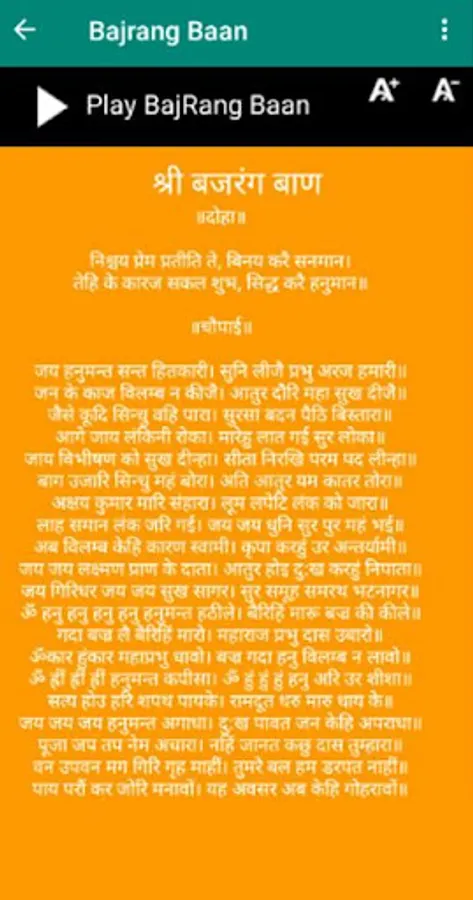 Bajrang Baan
Play BajRang Baan A+ A-
श्री बजरंग बाण
॥दोहा॥
निश्चय प्रेम प्रतीति ते, बिनय करै सनमान।
तेहि के कारज सकल शुभ, सिद्ध करै हनुमान॥
॥चौपाई॥
जय हनुमन्त सन्त हितकारी। सुनि लीजै प्रभु अरज हमारी॥
जन के काज विलम्ब न कीजै। आतुर दौरि महा सुख दीजै॥
जैसे कूदि सिन्धु वहि पारा। सुरसा बदन पैठि बिस्तारा॥
आगे जाय लंकिनी रोका। मारेहु लात गई सुर लोका॥
जाय विभीषण को सुख दीन्हा। सीता निरखि परम पद लीन्हा॥
बाग उजारि सिन्धु महं बोरा। अति आतुर यम कातर तोरा॥
अक्षय कुमार मारि संहारा। लूम लपेटि लंक को जारा॥
लाह समान लंक जरि गई। जय जय धुनि सुर पुर महं भई॥
अब विलम्ब केहि कारण स्वामी। कृपा करहुं उर अन्तर्यामी॥
जय जय लक्ष्मण प्राण के दाता। आतुर होइ दुःख करहुं निपाता॥
जय गिरिधर जय जय सुख सागर। सुर समूह समरथ भटनागर॥
ॐ हनु हनु हनु हनु हनुमन्त हठीले। बैरिहिं मारू बज्र की कीले॥
गदा बज्र लै बैरिहिं मारो। महाराज प्रभु दास उबारो॥
ॐकार हुंकार महाप्रभु धावो। बज्र गदा हनु विलम्ब न लावो॥
ॐ ह्रीं ह्रीं ह्रीं हनुमन्त कपीसा। ॐ हुं हुं हुं हनु अरि उर शीशा॥
सत्य होउ हरि शपथ पायके। रामदूत धरु मारु धाय के॥
जय जय जय हनुमन्त अगाधा। दुःख पावत जन केहि अपराधा॥
पूजा जप तप नेम अचारा। नहिं जानत कछु दास तुम्हारा॥
वन उपवन मग गिरि गृह माहीं। तुमरे बल हम डरपत नाहीं॥
पाय परौं कर जोरि मनावों। यह अवसर अब केहि गोहरावों॥